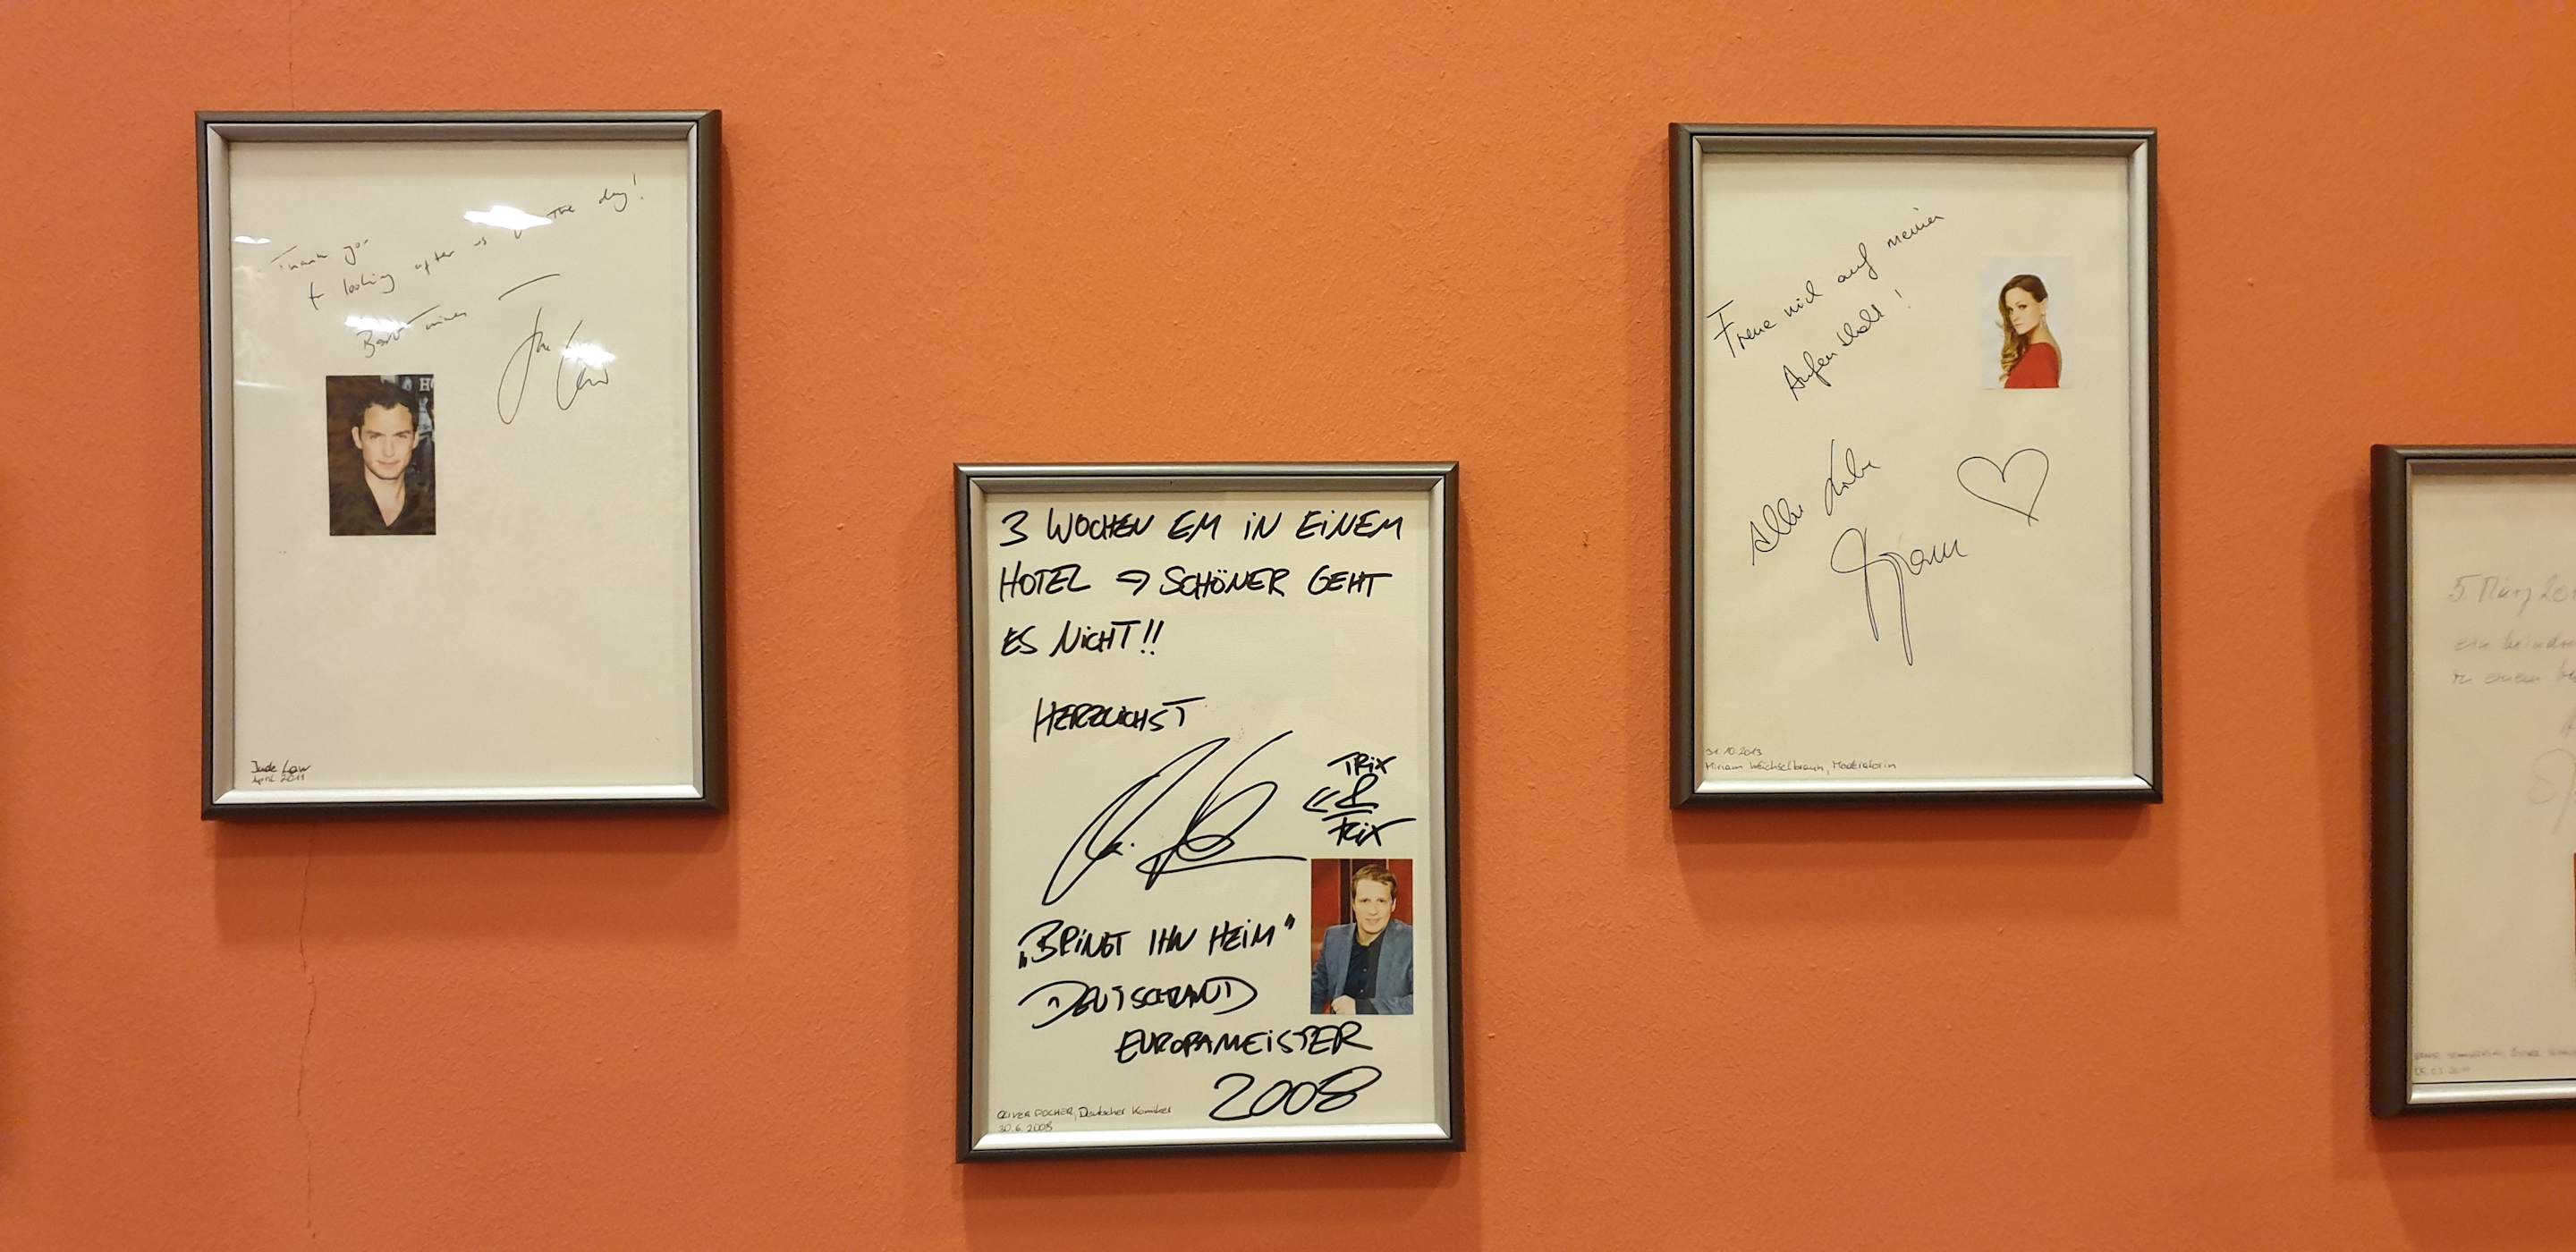 Thank you
for looking after us the day!
Best wishes
Jude Law
Jude Law
April 2011
H
3 WOCHEN EM iN EiNEM
HOTEL → SCHÖNER GEHT
ES NiCHT!!
HERZLICHST
TRiX
&
TRiX
„BRiNGT IHN HEiM“
DEUTSCHLAND
EUROPAMEiSTER
2008
OLIVER POCHER, Deutscher Komiker
30.6.2008
Freue mich auf meinen
Aufenthalt!
Alles Liebe
Miriam
31.10.2013
Miriam Weichselbraun, Moderatorin
5. März